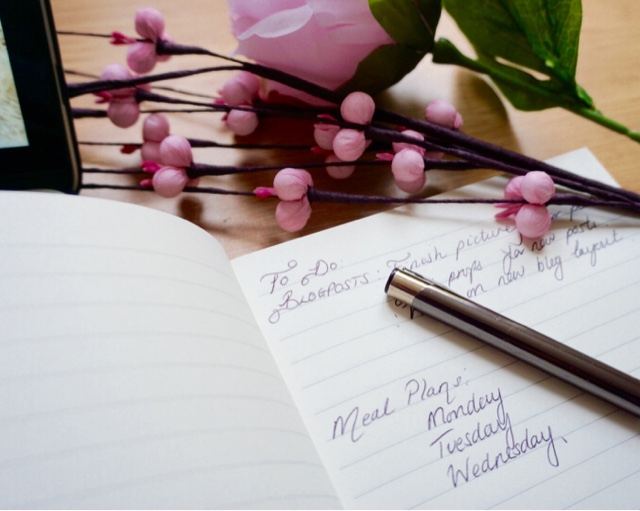 To Do:
BLOGPOSTS: Finish picture
props for new posts
on new blog layout
Meal Plans:
Monday
Tuesday
Wednesday